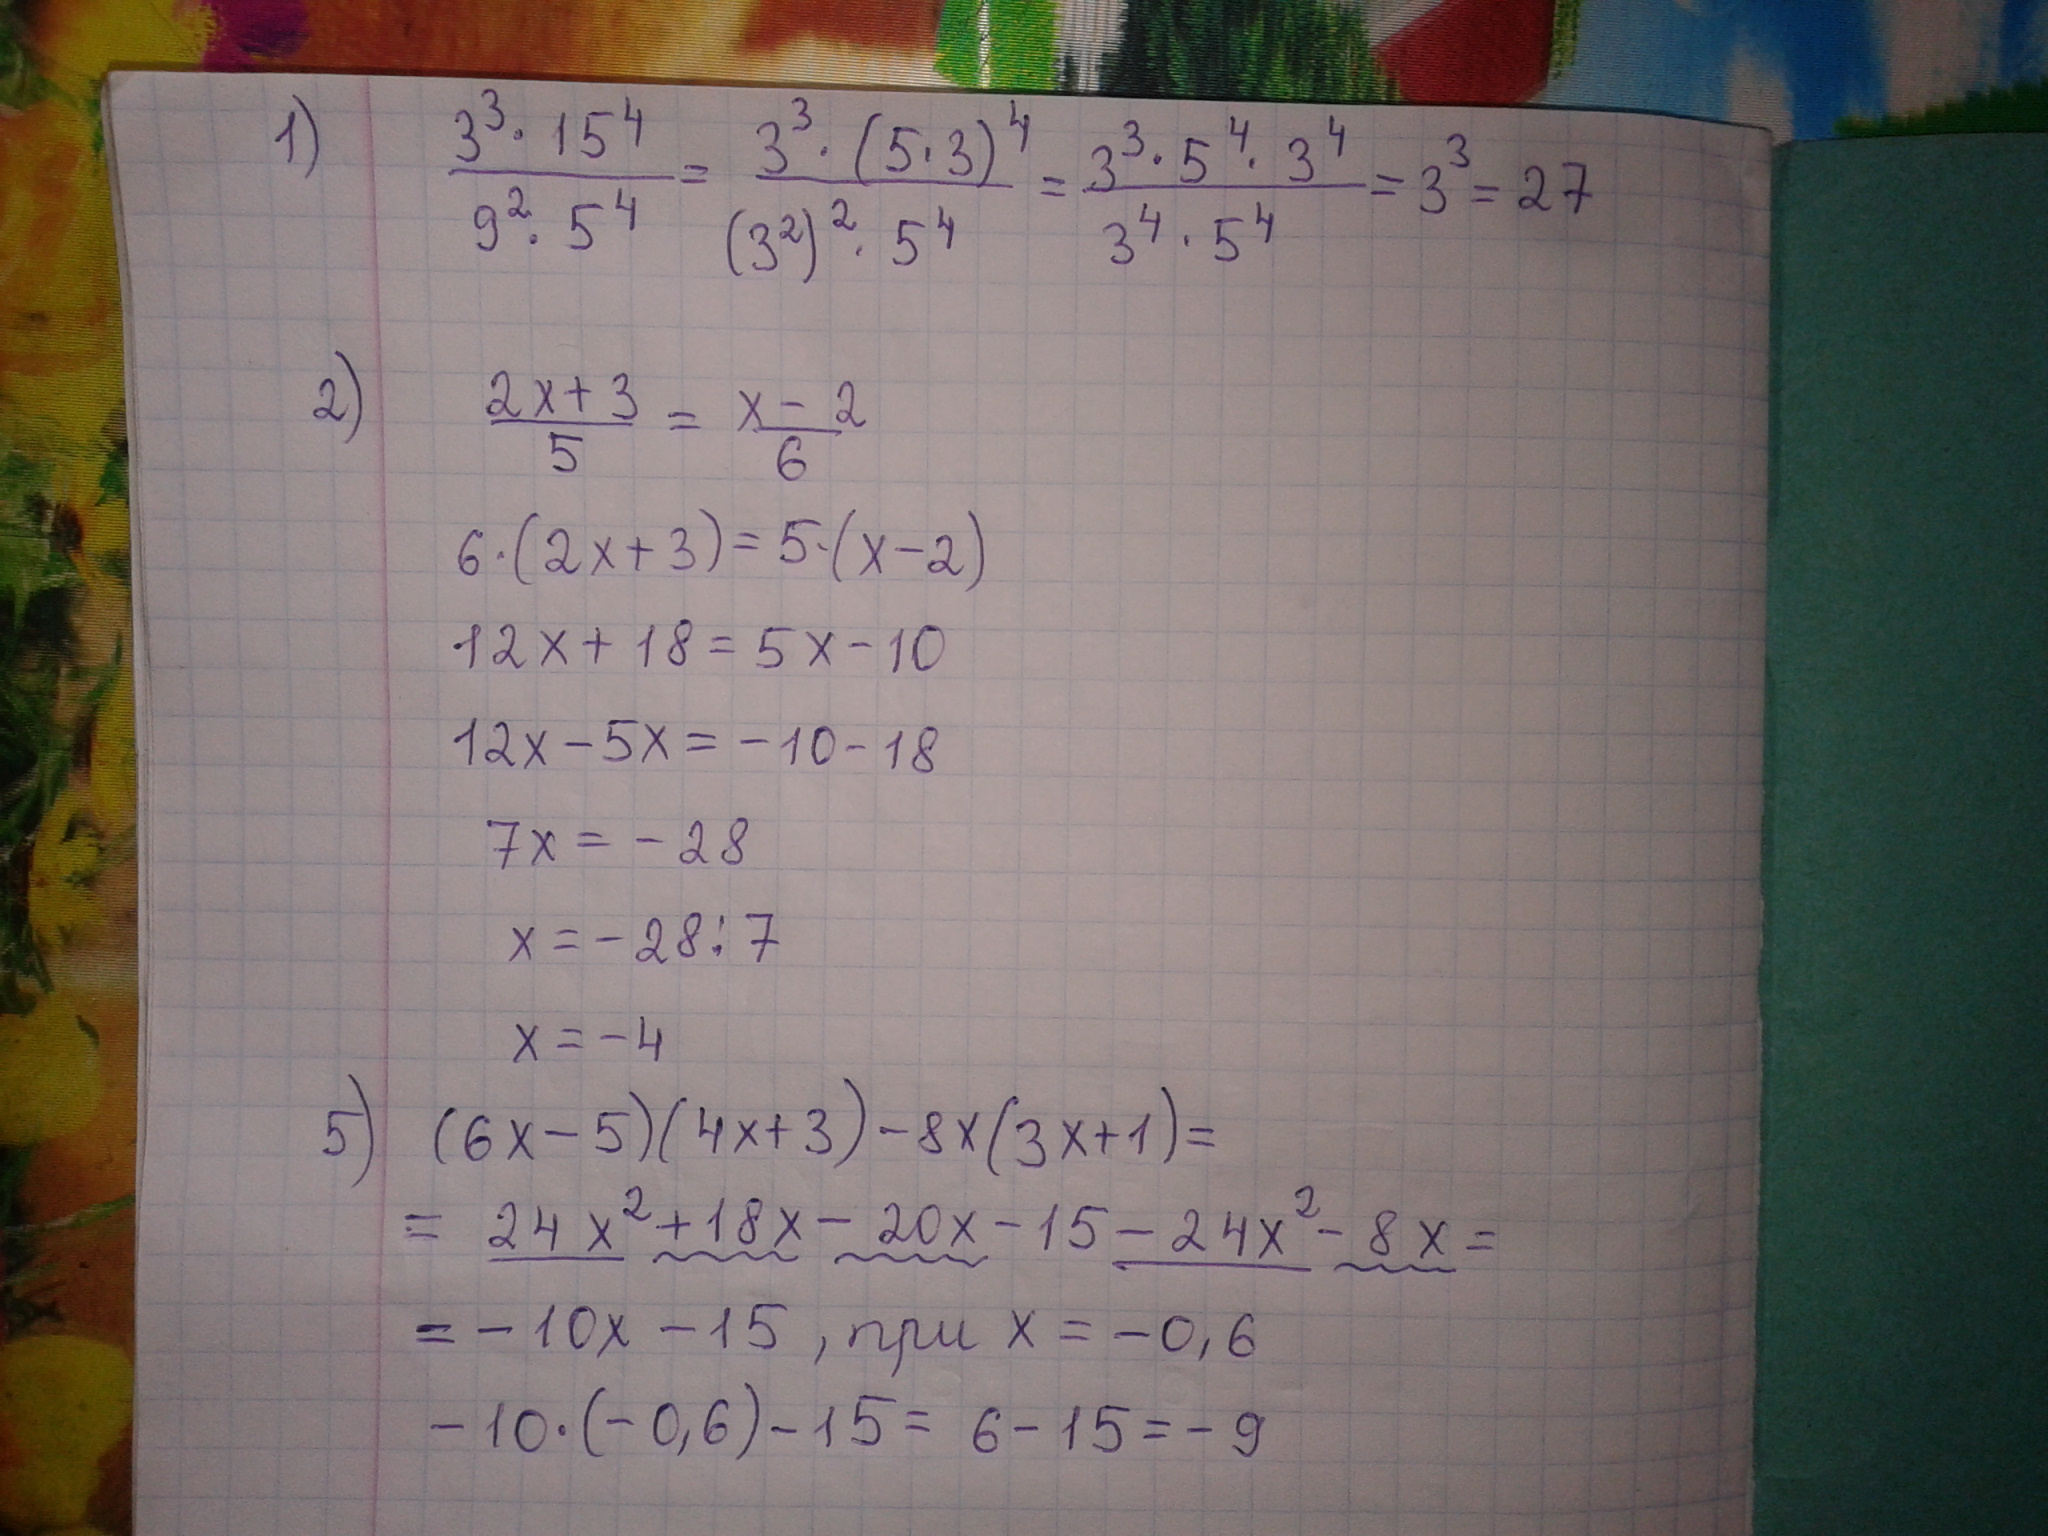 1) 3³·15⁴/9²·5⁴ = 3³·(5·3)⁴/(3²)²·5⁴ = 3³·5⁴·3⁴/3⁴·5⁴ = 3³ = 27
2) 2x+3/5 = x-2/6
6·(2x+3)=5·(x-2)
12x+18=5x-10
12x-5x=-10-18
7x=-28
x=-28:7
x=-4
5) (6x-5)(4x+3)-8x(3x+1)=
= 24x²+18x-20x-15-24x²-8x=
=-10x-15, при x=-0,6
-10·(-0,6)-15= 6-15=-9